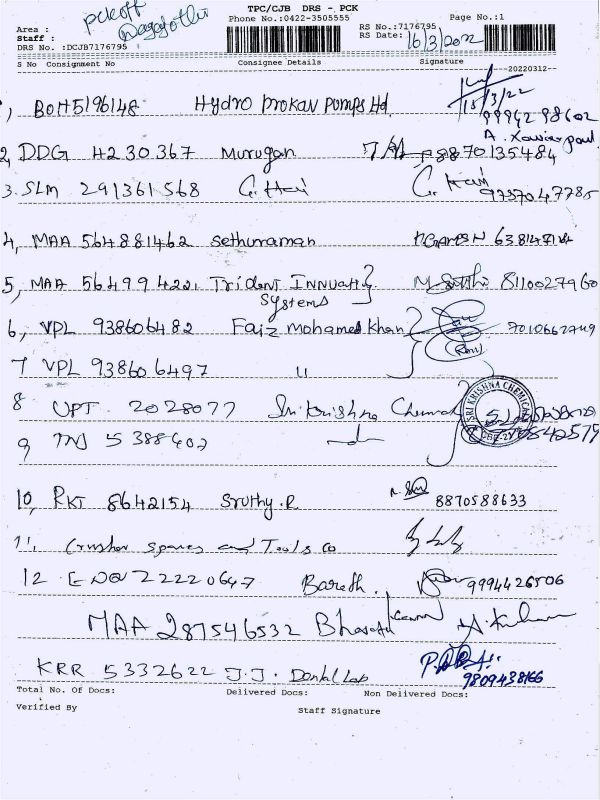 TPC/CJB DRS - PCK
pckoff
Area :
Phone No.:0422-3505555
RS No.:7176795
Page No.:1
Staff :
RS Date: 16/3/2022
DRS No. :DCJB7176795
S No Consignment No Consignee Details Signature
--20220312--
1, BOH5196148 Hydro Prokav Pumps ltd 15/3/22
99942 98602
A. Xavier paul
2, DDG 4230367 Murugan 8870135484
3. SLM 291361568 G. Hari G. Hari 9757047785
4, MAA 564881462 Sethuraman
5, MAA 56499422 Trident Innuvati 8110027960
Systems
6, VPL 938606482 Faiz Mohamed Khan
7 VPL 938606497 "
8 UPT. 2028077 Sri Krishna Chemical
SRI KRISHNA CHEMICAL
9 5388402
10, RKT 8642154 Sruthy.R 8870588633
11, Crusher spares and Tools co
12 22220647 Barath. 9994426506
MAA 287546532 Bharath
KRR 5332622 J.J. Dental Lab
9809438166
Total No. Of Docs: Delivered Docs: Non Delivered Docs:
Verified By Staff Signature